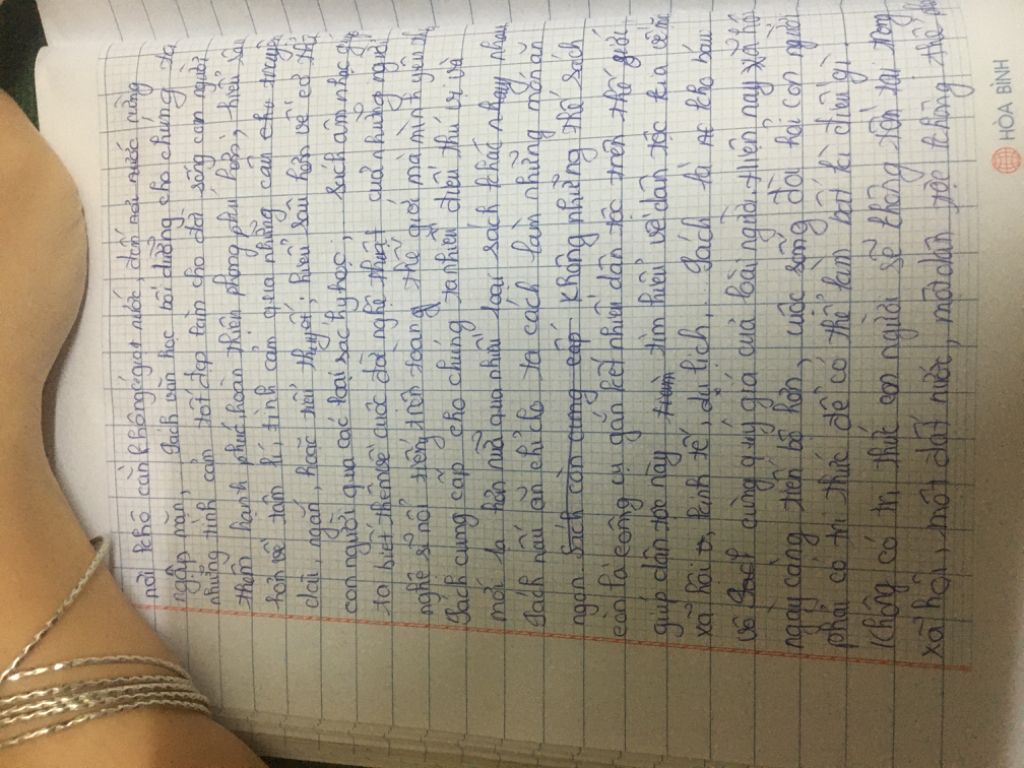 nơi khô cằn không có giọt nước, đến nơi nước cũng
ngập mặn, Sách văn học bồi dưỡng cho chúng ta
những tình cảm tốt đẹp làm cho đời sống con người
thêm hạnh phúc hoàn thiện phong phú hơn, hiểu sâu
hơn về tâm lí, tình cảm qua những câu chuyện
dài, ngắn, hoặc tiểu thuyết; hiểu sâu hơn về cơ thể
con người qua các loại sách y học, sách âm nhạc giúp
ta biết thêm về cuộc đời nghệ thuật của những người
nghệ sĩ nổi tiếng trên toàng thế giới mà mình yêu thích
Sách cung cấp cho chúng ta nhiều điều thú vị và
mới lạ hơn nữa qua nhiều loại sách khác nhau như
Sách nấu ăn chỉ cho ta cách làm những món ăn
ngon. Sách còn cung cấp Không những thế sách
còn là công cụ gắn kết nhiều dân tộc trên thế giới
giúp dân tộc này tìm hiểu về dân tộc kia về
xã hội, kinh tế, du lịch,... Sách là kho báu
vô cùng quý giá của loài người. Hiện nay xã hội
ngày càng tiến bộ hơn, cuộc sống đòi hỏi con người
phải có tri thức để có thể làm bất kì điều gì.
Không có tri thức con người sẽ không tồn tại trong
xã hội, một đất nước, một dân tộc không thể
HÒA BÌNH